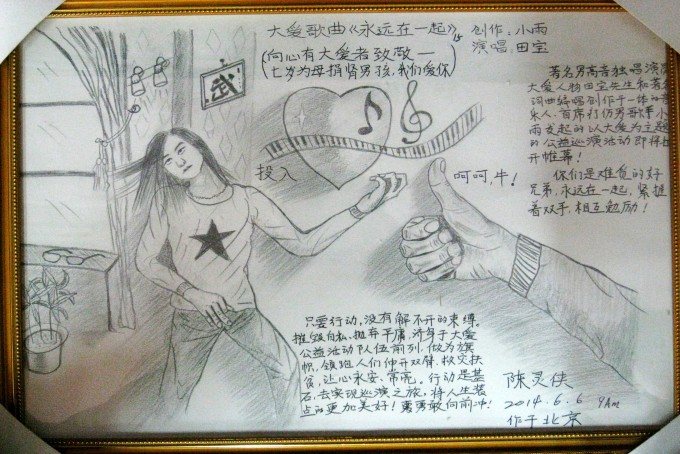 大爱歌曲《永远在一起》
创作:小雨
演唱:田宝
(向心有大爱者致敬一
(七岁为母捐肾男孩,我们爱你
武
投入
呵呵,牛!
著名男高音独唱演
大爱人物田宝先生和著名
词曲编唱创作于一体的音
乐人、首席打仿男歌手小
雨发起的以大爱为主题
的公益巡演活动即将拉
开帷幕!
你们是难觅的好
兄弟,永远在一起,紧握
着双手,相互勉励!
只要行动,没有解不开的束缚。
摧毁自私、抛弃平庸,济身于大爱
公益活动队伍前列,做为旗
帜,领跑人们伸开双臂,救灾扶
贫,让心永安、常亮。行动是基
石,去实现巡演之旅,将人生装
点的更加美好!勇勇敢向前冲!
陈灵侠
2014.6.6 4Am
作于北京